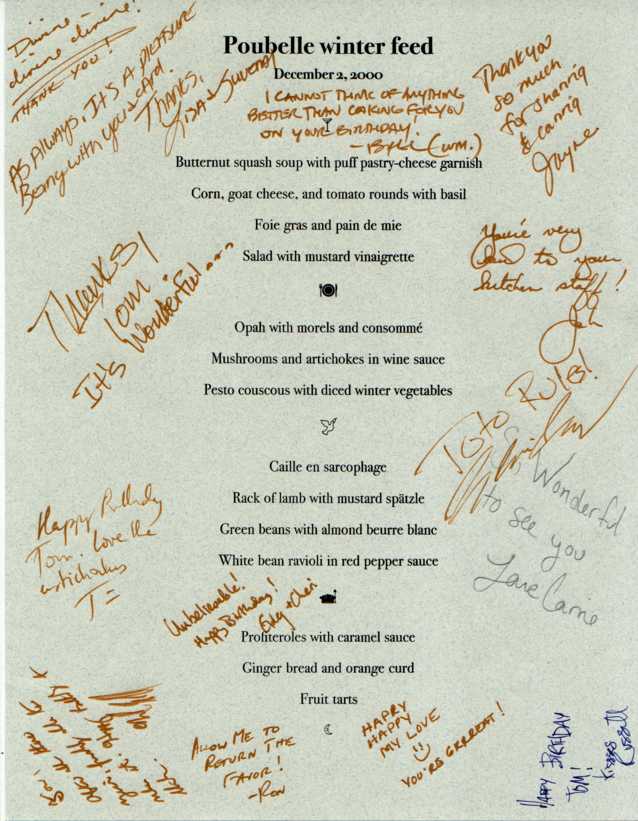 Divine
divine divine!
THANK YOU!
AS ALWAYS, IT'S A PLEASURE
Being with you & card.
THANKS,
LISA &
Poubelle winter feed
December 2, 2000
I CANNOT THINK OF ANYTHING
BETTER THAN COOKING FOR YOU
ON YOUR BIRTHDAY.
- BILL (WM.)
Thank you
so much
for sharing
& caring
Jayne
Butternut squash soup with puff pastry-cheese garnish
Corn, goat cheese, and tomato rounds with basil
Foie gras and pain de mie
Salad with mustard vinaigrette
You're very
kind to your
kitchen staff!
Thanks,
Tom
It's Wonderful....
Opah with morels and consommé
Mushrooms and artichokes in wine sauce
Pesto couscous with diced winter vegetables
TOTO RULES!
Caille en sarcophage
Rack of lamb with mustard spätzle
Green beans with almond beurre blanc
White bean ravioli in red pepper sauce
So Wonderful
to see you
Love Carrie
Happy Birthday
Tom. Love the
artichokes
T=
Unbelievable!
Happy Birthday!
Profiteroles with caramel sauce
Ginger bread and orange curd
Fruit tarts
ALLOW ME TO
RETURN THE
FAVOR!
-RON
HAPPY
HAPPY
MY LOVE
YOU'RE GRRREAT!
HAPPY BIRTHDAY
TOM!
Kisses
Russell